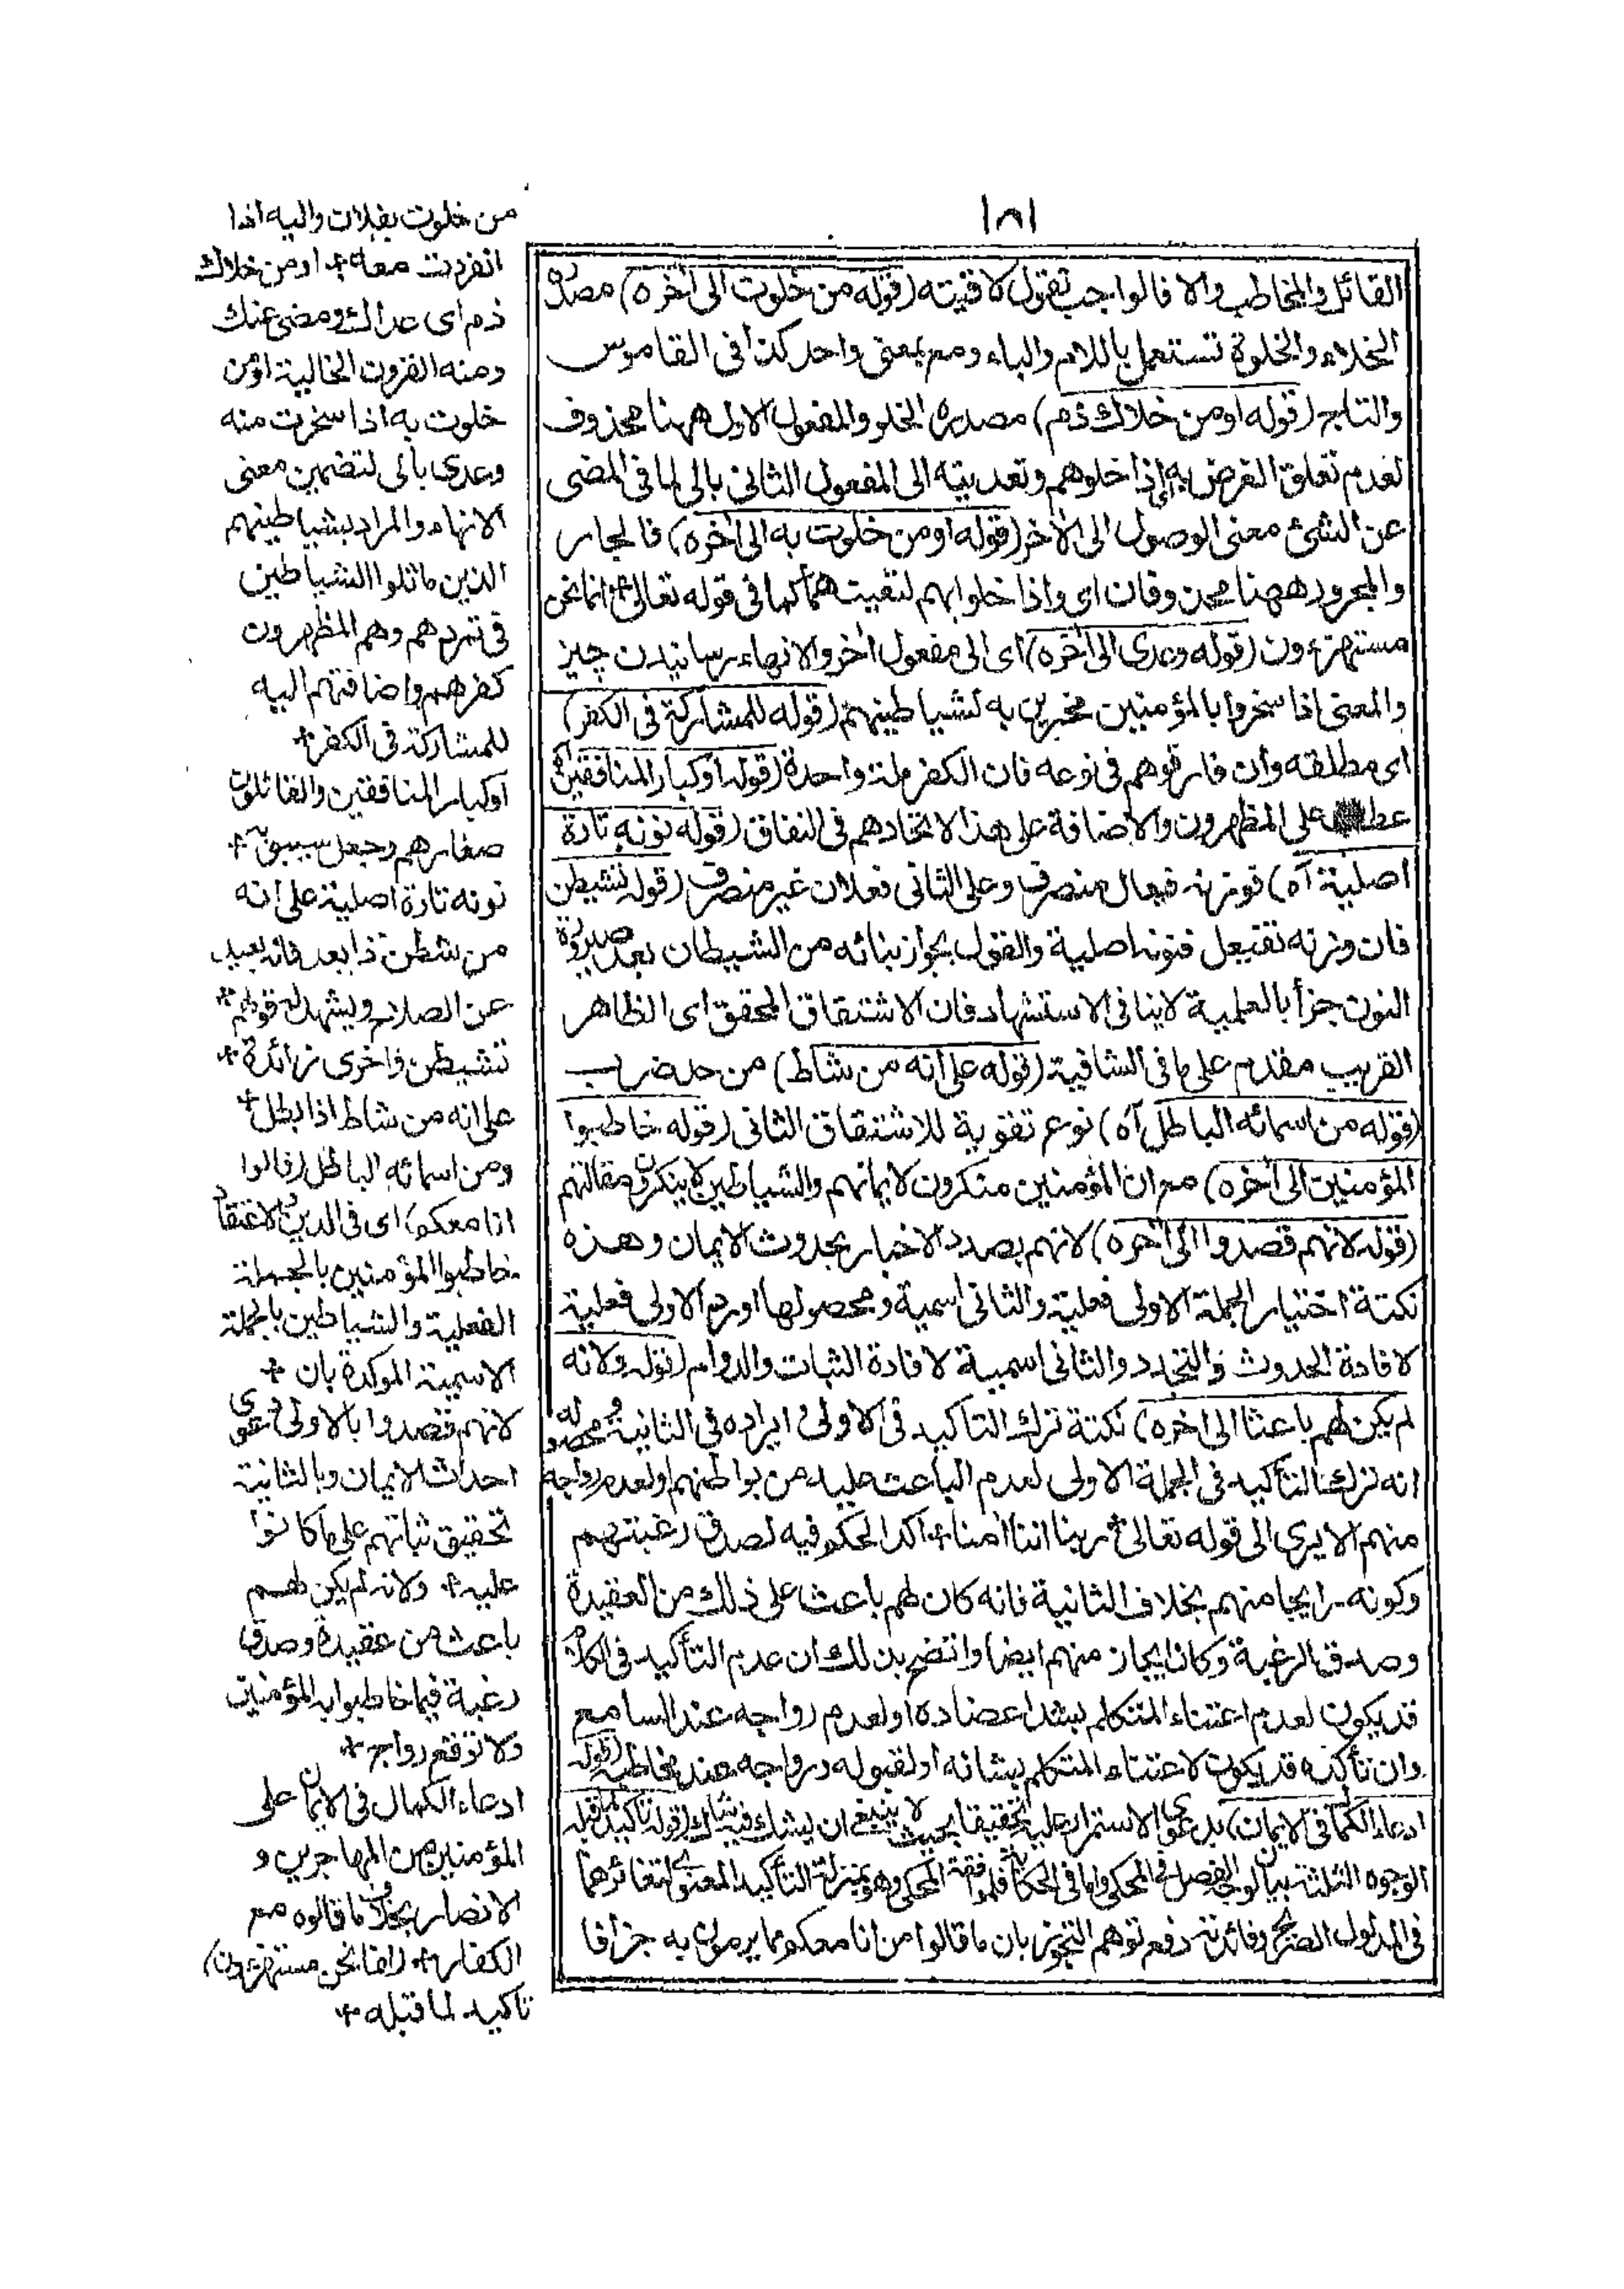 ١٨١
القائل والمخاطب والا فالواجب تقول لاقيته (قوله من خلوت الى آخره) مصدره
الخلاء والخلوة تستعمل باللام والباء ومع بمعنى واحد كذا فى القاموس
والتاج (قوله او من خلاك ذم) مصدره الخلو والمفعول الاول ههنا محذوف
لعدم تعلق الغرض به اى اذا خلوهم وتعديته الى المفعول الثانى بالى لما فى المضى
عن الشئ معنى الوصول الى الآخر (قوله او من خلوت به الى آخره) فالجار
والمجرور ههنا محذوفان اى واذا خلوا بهم كما فى قوله تعالى انما نحن
مستهزءون (قوله وعدى الى آخره) اى الى مفعول آخر والانهاء رسانيدن چيز
والمعنى اذا سخروا بالمؤمنين مخبرين به لشياطينهم (قوله للمشاركة فى الكفر)
اى مطلقه وان فارقوهم فى نوعه فان الكفر ملة واحدة (قوله او كبار المنافقين آه)
عطف على المظهرون والاضافة على هذا لاتحادهم فى النفاق (قوله نونه تارة
اصلية آه) فوزنه فيعال منصرف وعلى الثانى فعلان غير منصرف (قوله تشيطن
فان وزنه تفيعل فنونه اصلية والقول بجواز بنائه من الشيطان بعد صيرورة
النون جزأ بالعلمية لا ينافى الاستشهاد فان الاشتقاق المحقق اى الظاهر
القريب مقدم على ما فى الشافية (قوله على انه من شاط) من حد ضرب
(قوله من اسمائه الباطل آه) نوع تقوية للاشتقاق الثانى (قوله خاطبوا
المؤمنين الى آخره) مع ان المؤمنين منكرون لايمانهم والشياطين لا ينكرون مقالتهم
(قوله لانهم قصدوا الى آخره) لانهم بصدد الاخبار بحدوث الايمان وهذه
نكتة اختيار الجملة الاولى فعلية والثانى اسمية ومحصولها اورد الاولى فعلية
لافادة الحدوث والتجدد والثانى اسمية لافادة الثبات والدوام (قوله ولانه
لم يكن لهم باعثا الى آخره) نكتة ترك التاكيد فى الاولى وايراده فى الثانية ومحصوله
انه ترك التأكيد فى الجملة الاولى لعدم الباعث عليه من بواطنهم او لعدم رواجه
منهم الا يرى الى قوله تعالى ربنا اننا آمنا اكد الحكم فيه لصدق رغبتهم
وكونه رايجا منهم بخلاف الثانية فانه كان لهم باعث على ذلك من العقيدة
وصدق الرغبة وكان ايجاز منهم ايضا واتضح بذلك ان عدم التأكيد فى الكلام
قد يكون لعدم اعتناء المتكلم او لعدم رواجه عند السامع
وان تأكيده قد يكون لاعتناء المتكلم بشانه او لقبوله ورواجه عند مخاطبه (قوله
ادعاء الكمال فى الايمان) بدعوى الاستمرار عليه تحقيقا بحيث لا ينبغى ان يشك فيه شاك (قوله تاكيد لما قبله
الوجوه الثلثة بيان لوجه الفصل فى المحكى واما فى الحكاية فلموافقة المحكى وهو بمنزلة التأكيد المعنوى لتغائرهما
فى المدلول الصريح وفائدته دفع توهم التجوز بان ما قالوا من انا معكم مما يرمون به جزافا
من خلوت بفلان واليه اذا
انفردت معه + او من خلاك
ذم اى عداك ومضى عنك
ومنه القرون الخالية او من
خلوت به اذا سخرت منه
وعدى بالى لتضمين معنى
الانهاء والمراد بشياطينهم
الذين ماثلوا الشياطين
فى تمردهم وهم المظهرون
كفرهم واضافتهم اليه
للمشاركة فى الكفر +
او كبار المنافقين والقائلون
صغارهم وجعل سيبويه +
نونه تارة اصلية على انه
من شطن اذا بعد فانه بعيد
عن الصلاح ويشهد له قولهم +
تشيطن واخرى زائدة +
على انه من شاط اذا بطل +
ومن اسمائه الباطل (قالوا
انا معكم) اى فى الدين والاعتقاد
خاطبوا المؤمنين بالجملة
الفعلية والشياطين بالجملة
الاسمية المؤكدة بان +
لانهم قصدوا بالاولى دعوى
احداث الايمان وبالثانية
تحقيق ثباتهم على ما كانوا
عليه + ولانه لم يكن لهم
باعث من عقيدة وصدق
رغبة فيما خاطبوا به المؤمنين
ولا توقع رواج +
ادعاء الكمال فى الايمان على
المؤمنين من المهاجرين و
الانصار بخلاف ما قالوه مع
الكفار + (انما نحن مستهزؤن)
تاكيد لما قبله +